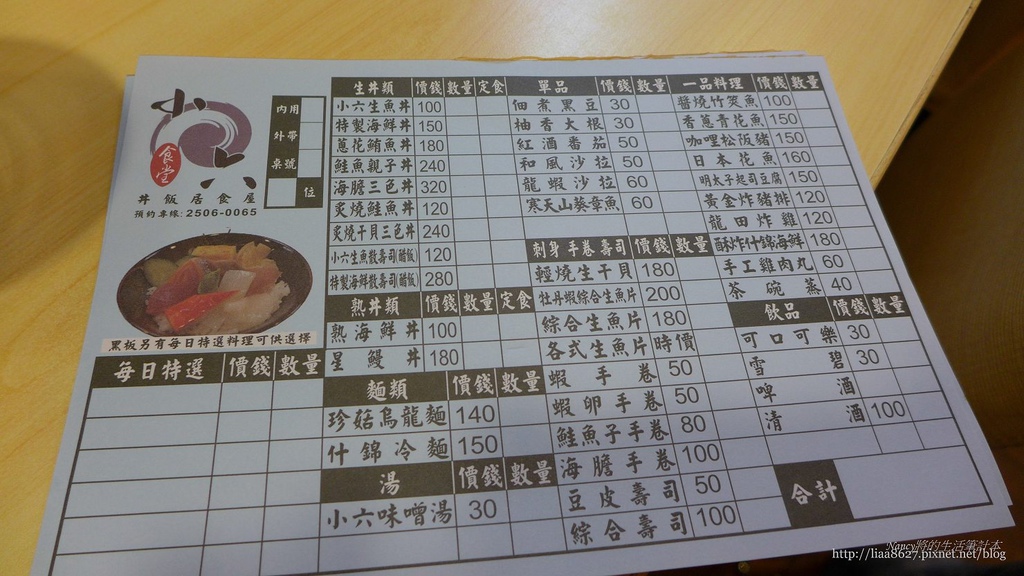 小六
食堂
丼飯居食屋
預約專線:2506-0065
內用
外帶
桌號
位
黑板另有每日特選料理可供選擇
每日特選 價錢 數量
生丼類 價錢 數量 定食
小六生魚丼 100
特製海鮮丼 150
蔥花鮪魚丼 180
鮭魚親子丼 240
海膽三色丼 320
炙燒鮭魚丼 120
炙燒干貝三色丼 240
小六生魚散壽司(醋飯) 120
特製海鮮散壽司(醋飯) 280
熟丼類 價錢 數量 定食
熟海鮮丼 100
星鰻丼 180
麵類 價錢 數量
珍菇烏龍麵 140
什錦冷麵 150
湯 價錢 數量
小六味噌湯 30
單品 價錢 數量
佃煮黑豆 30
柚香大根 30
紅酒番茄 50
和風沙拉 50
龍蝦沙拉 60
寒天山葵章魚 60
刺身手卷壽司 價錢 數量
輕燒生干貝 180
牡丹蝦綜合生魚片 200
綜合生魚片 180
各式生魚片 時價
蝦手卷 50
蝦卵手卷 50
鮭魚子手卷 80
海膽手卷 100
豆皮壽司 50
綜合壽司 100
一品料理 價錢 數量
醬燒竹筴魚 100
香蔥青花魚 150
咖哩松阪豬 150
日本花魚 160
明太子起司豆腐 150
黃金炸豬排 120
龍田炸雞 120
酥炸什錦海鮮 180
手工雞肉丸 60
茶碗蒸 40
飲品 價錢 數量
可口可樂 30
雪碧 30
啤酒
清酒 100
合計
Nancy將的生活筆計本
http://liaa8627.pixnet.net/blog